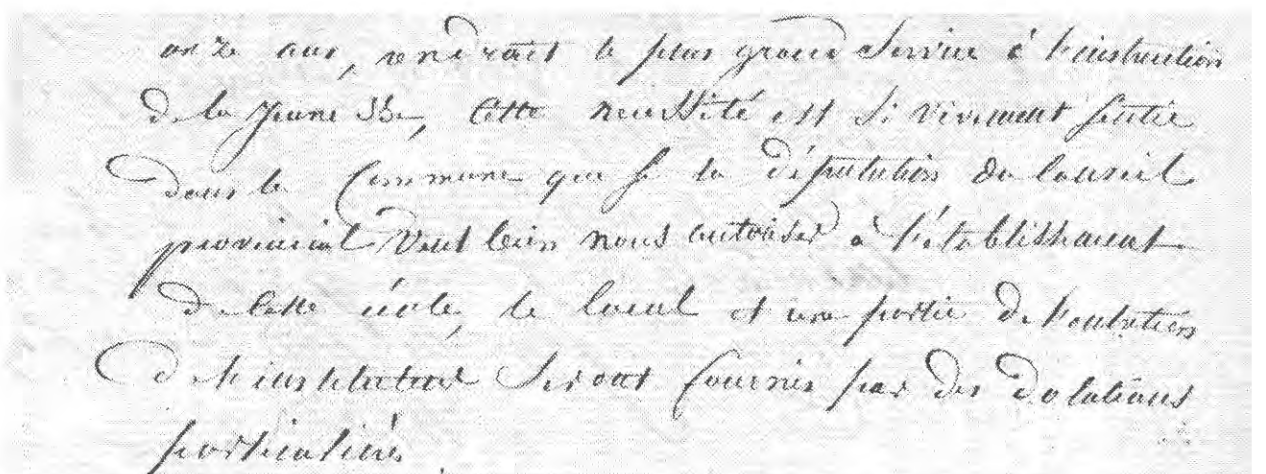 onze ans, rendrait le plus grand service à l'instruction
de la jeunesse, cette nécessité est si vivement sentie
dans la commune que si la députation du conseil
provincial veut bien nous autoriser à l'établissement
de cette école, le local et une partie de l'entretien
de l'instituteur seront fournis par des dotations
particulières